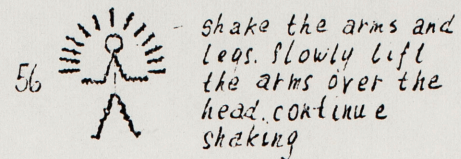 shake the arms and
legs. slowly lift
56 the arms over the
head. continue
shaking